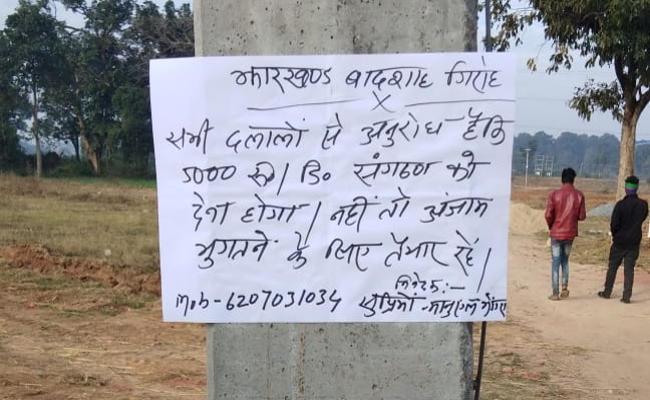 झारखण्ड बादशाह गिरोह
X
सभी दलालों से अनुरोध है कि
5000 रू०/ डि० संगठण को
देना होगा। नहीं तो अंजाम
भुगतने के लिए तैयार रहें।
निवेदक:-
Mob-6207031034 सुप्रिमों